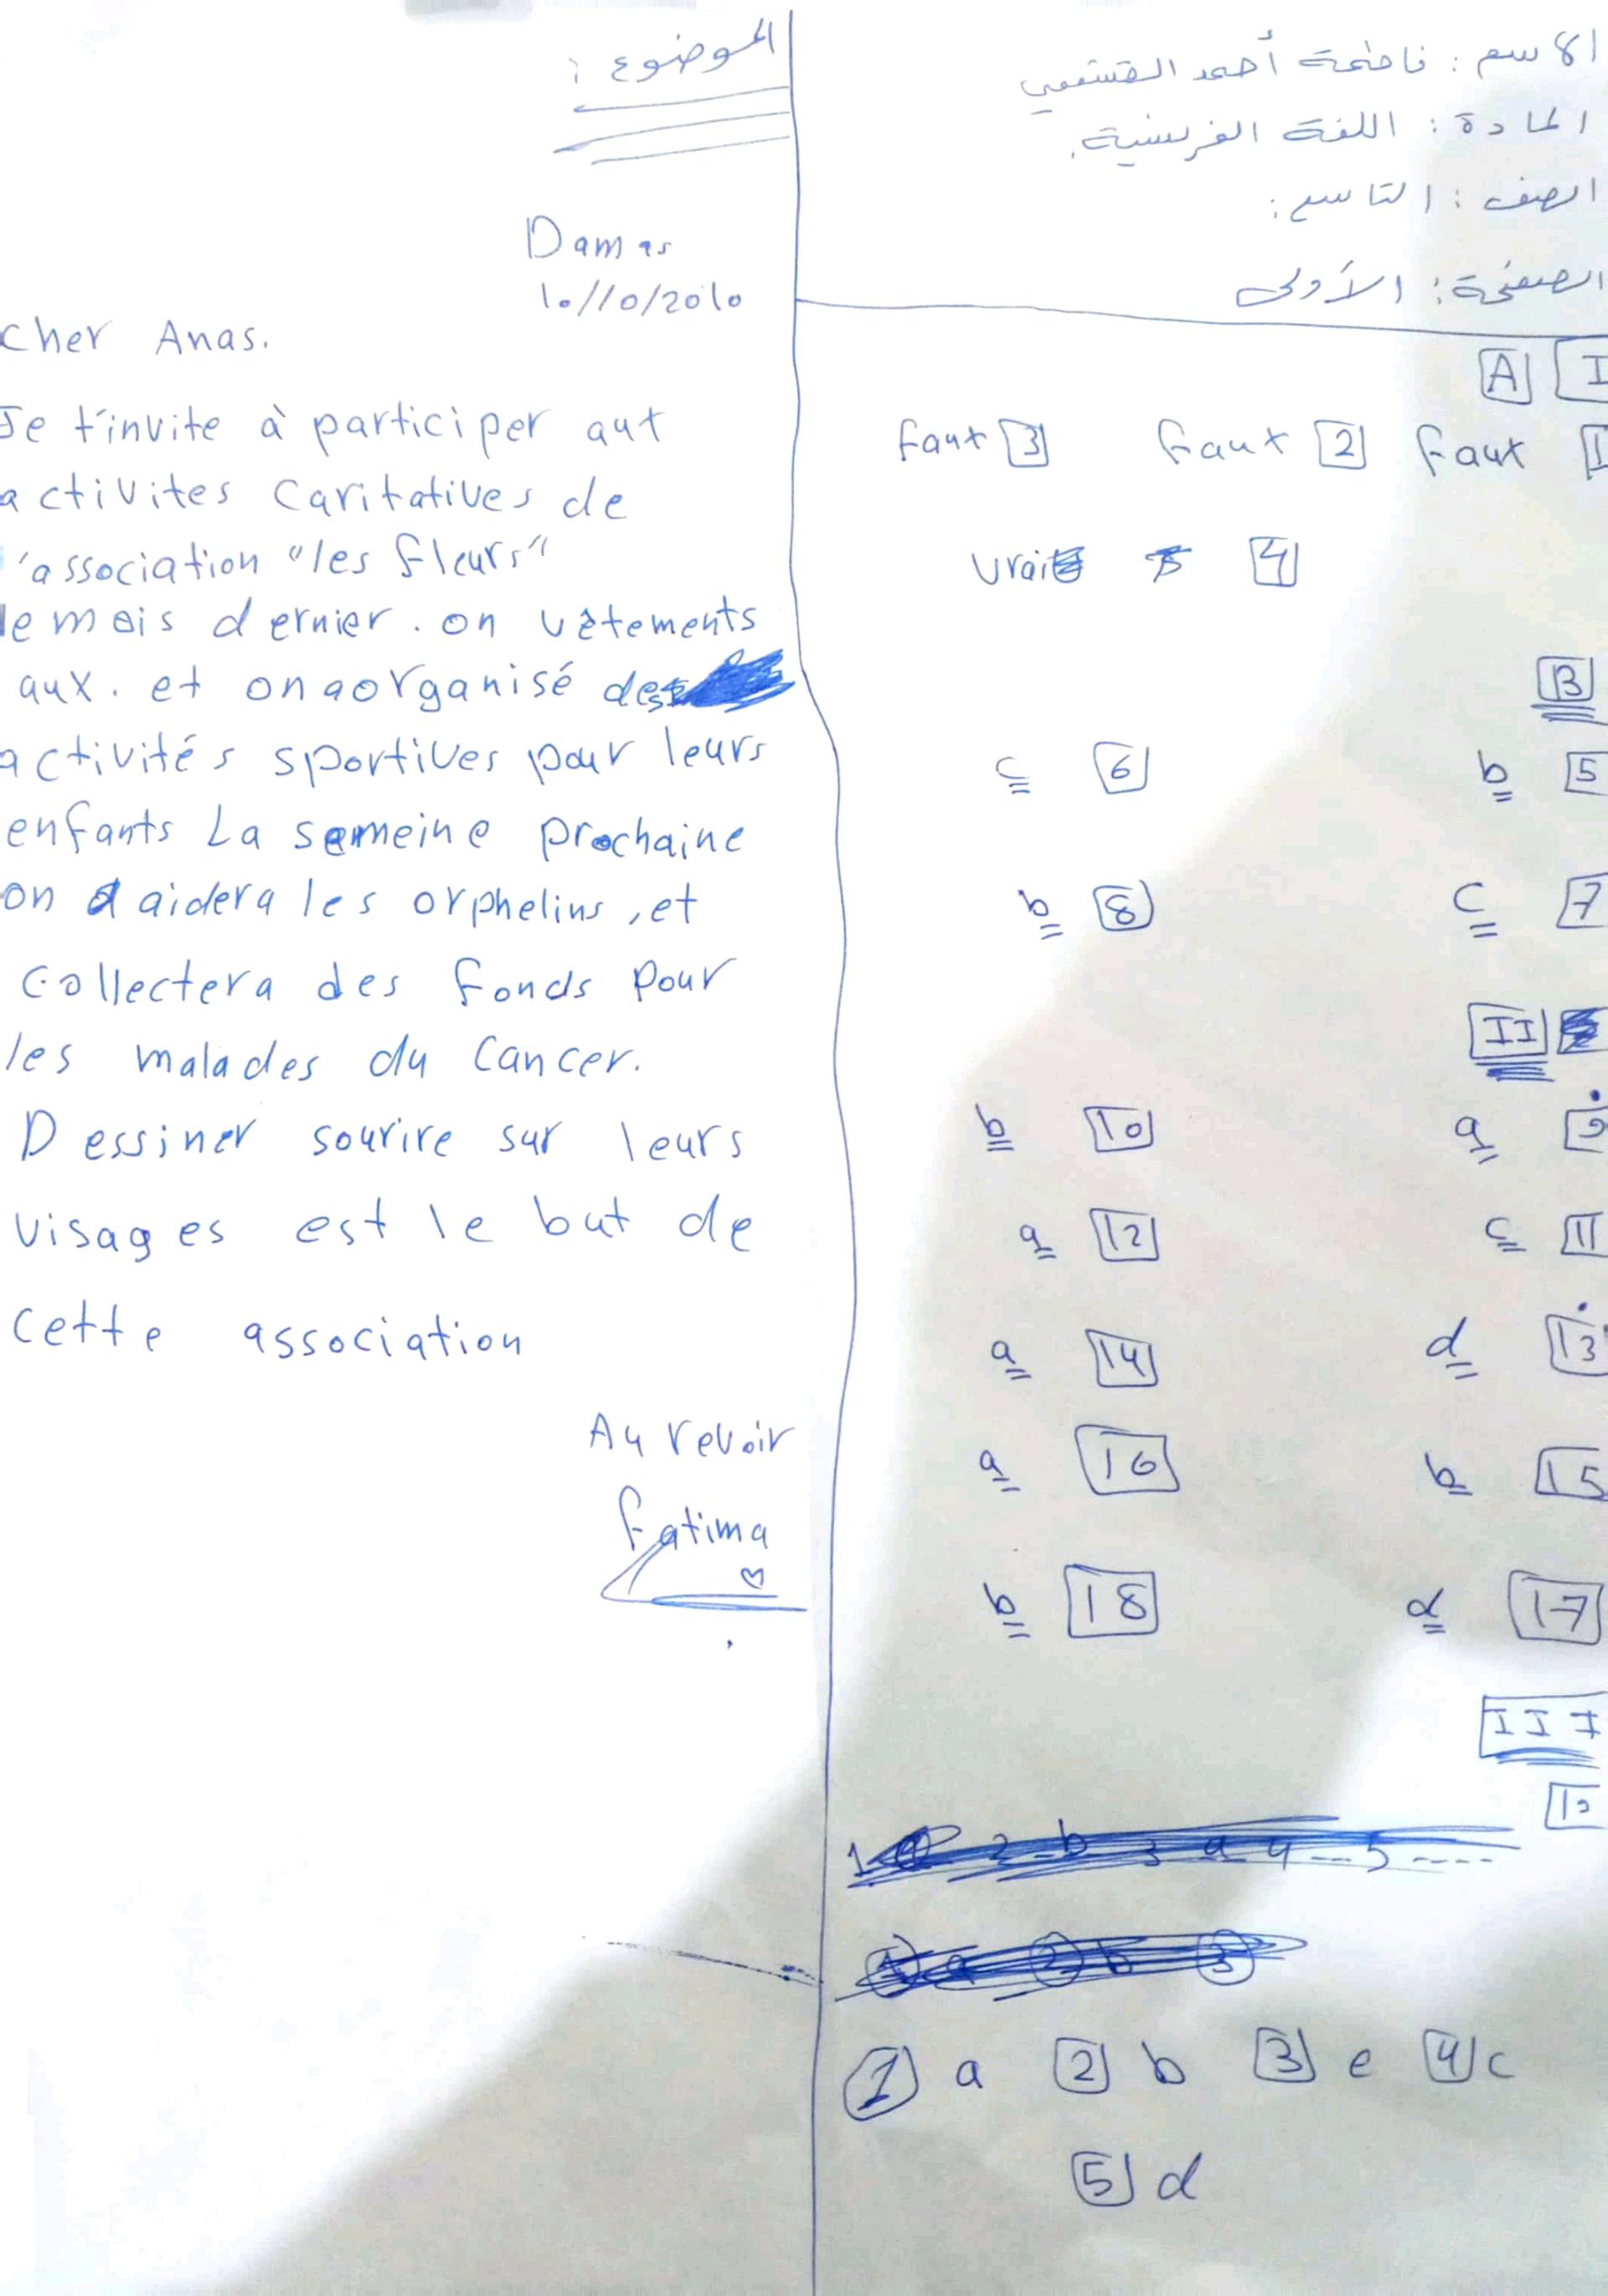 الاسم : فاطمة أحمد
المادة : اللغة الفرنسية.
الصف : التاسع :
الصفحة : الأولى
A I
faux 3 faux 2 faux 1
vrai 4
B
c 6 b 5
b 8 c 7
II
b 10 a 9
a 12 c 11
a 14 d 13
a 16 b 15
b 18 d 17
III
1 a 2 b 3 e 4 c
5 d
الموضوع :
Damas
10/10/2010
cher Anas.
Je t'invite à participer aux
activites caritatives de
'association "les fleurs"
le mois dernier . on vêtements
aux . et on a organisé des
activités sportives pour leurs
enfants La semeine prochaine
on aidera les orphelins , et
collectera des fonds pour
les malades du cancer.
Dessiner sourire sur leurs
visages est le but de
cette association
Au revoir
fatima